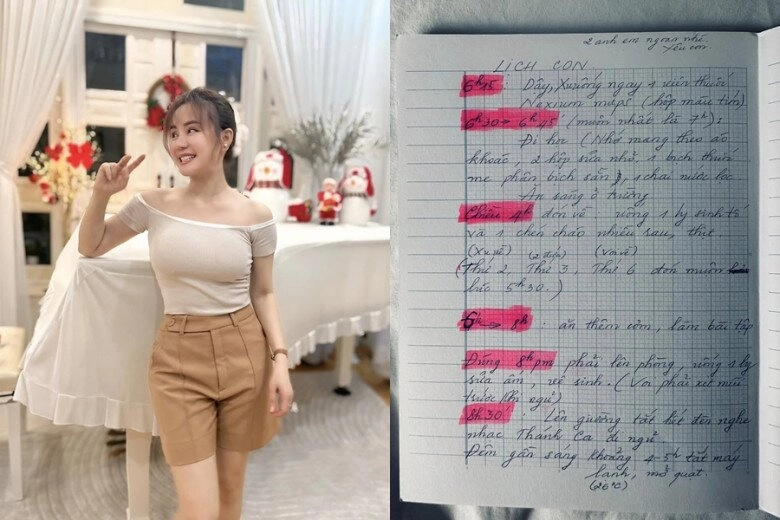 2 anh em ngoan nhé
Yêu con.
LỊCH CON
6h15 : Dậy, Xu uống ngay 1 viên thuốc
Nexium mups (hộp màu tím)
6h30 → 6h45 (muộn nhất là 7h) :
Đi học (Nhớ mang theo áo
khoác, 2 hộp sữa nhỏ, 1 bịch thuốc
mẹ phân bịch sẵn, 1 chai nước lọc
Ăn sáng ở trường
Chiều 4h đón về : uống 1 ly sinh tố
và 1 chén cháo nhiều rau, thịt.
(Xu về) (2 đứa) (Voi về)
(Thứ 2, Thứ 3, Thứ 6 đón muộn
lúc 5h30.)
6h → 8h : ăn thêm cơm, làm bài tập
Đúng 8h pm phải lên phòng, uống 1 ly
sữa ấm, vệ sinh. (Voi phải xịt mũi
trước khi ngủ)
8h30' : Lên giường tắt hết đèn nghe
nhạc Thánh Ca đi ngủ
Đêm gần sáng khoảng 4-5h tắt máy
lạnh, mở quạt.
(26°C)